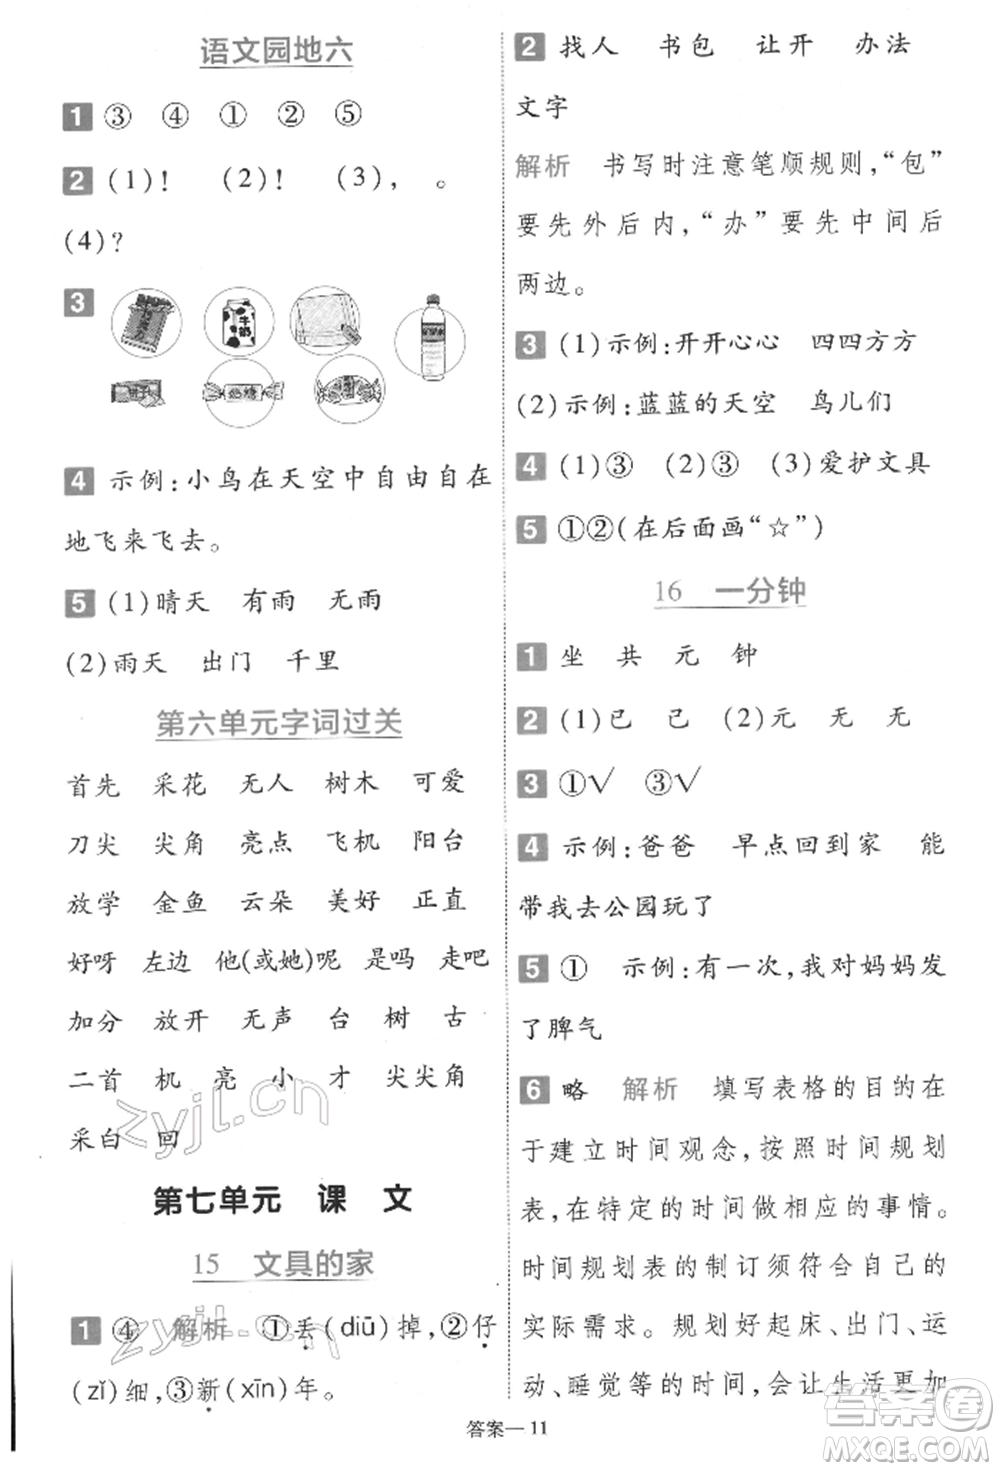 语文园地六
1 ③ ④ ① ② ⑤
2 (1)! (2)! (3), 。
(4)?
3
牛奶
奶糖
4 示例:小鸟在天空中自由自在
地飞来飞去。
5 (1)晴天 有雨 无雨
(2)雨天 出门 千里
第六单元字词过关
首先 采花 无人 树木 可爱
刀尖 尖角 亮点 飞机 阳台
放学 金鱼 云朵 美好 正直
好呀 左边 他(或她)呢 是吗 走吧
加分 放开 无声 台 树 古
二首 机 亮 小 才 尖尖角
采白 回
第七单元 课 文
15 文具的家
1 ④ 解析 ①丢(diū)掉,②仔
(zǐ)细,③新(xīn)年。
2 找人 书包 让开 办法
文字
解析 书写时注意笔顺规则,“包”
要先外后内,“办”要先中间后
两边。
3 (1)示例:开开心心 四四方方
(2)示例:蓝蓝的天空 鸟儿们
4 (1)③ (2)③ (3)爱护文具
5 ①②(在后面画“☆”)
16 一分钟
1 坐 共 元 钟
2 (1)已 己 (2)元 无 无
3 ①√ ③√
4 示例:爸爸 早点回到家 能
带我去公园玩了
5 ① 示例:有一次,我对妈妈发
了脾气
6 略 解析 填写表格的目的在
于建立时间观念,按照时间规划
表,在特定的时间做相应的事情。
时间规划表的制订须符合自己的
实际需求。规划起床、出门、运
动、睡觉等的时间,会让生活更加
答案—11
zyjl.cn
zyjl.cn
答案圈
MXQE.COM